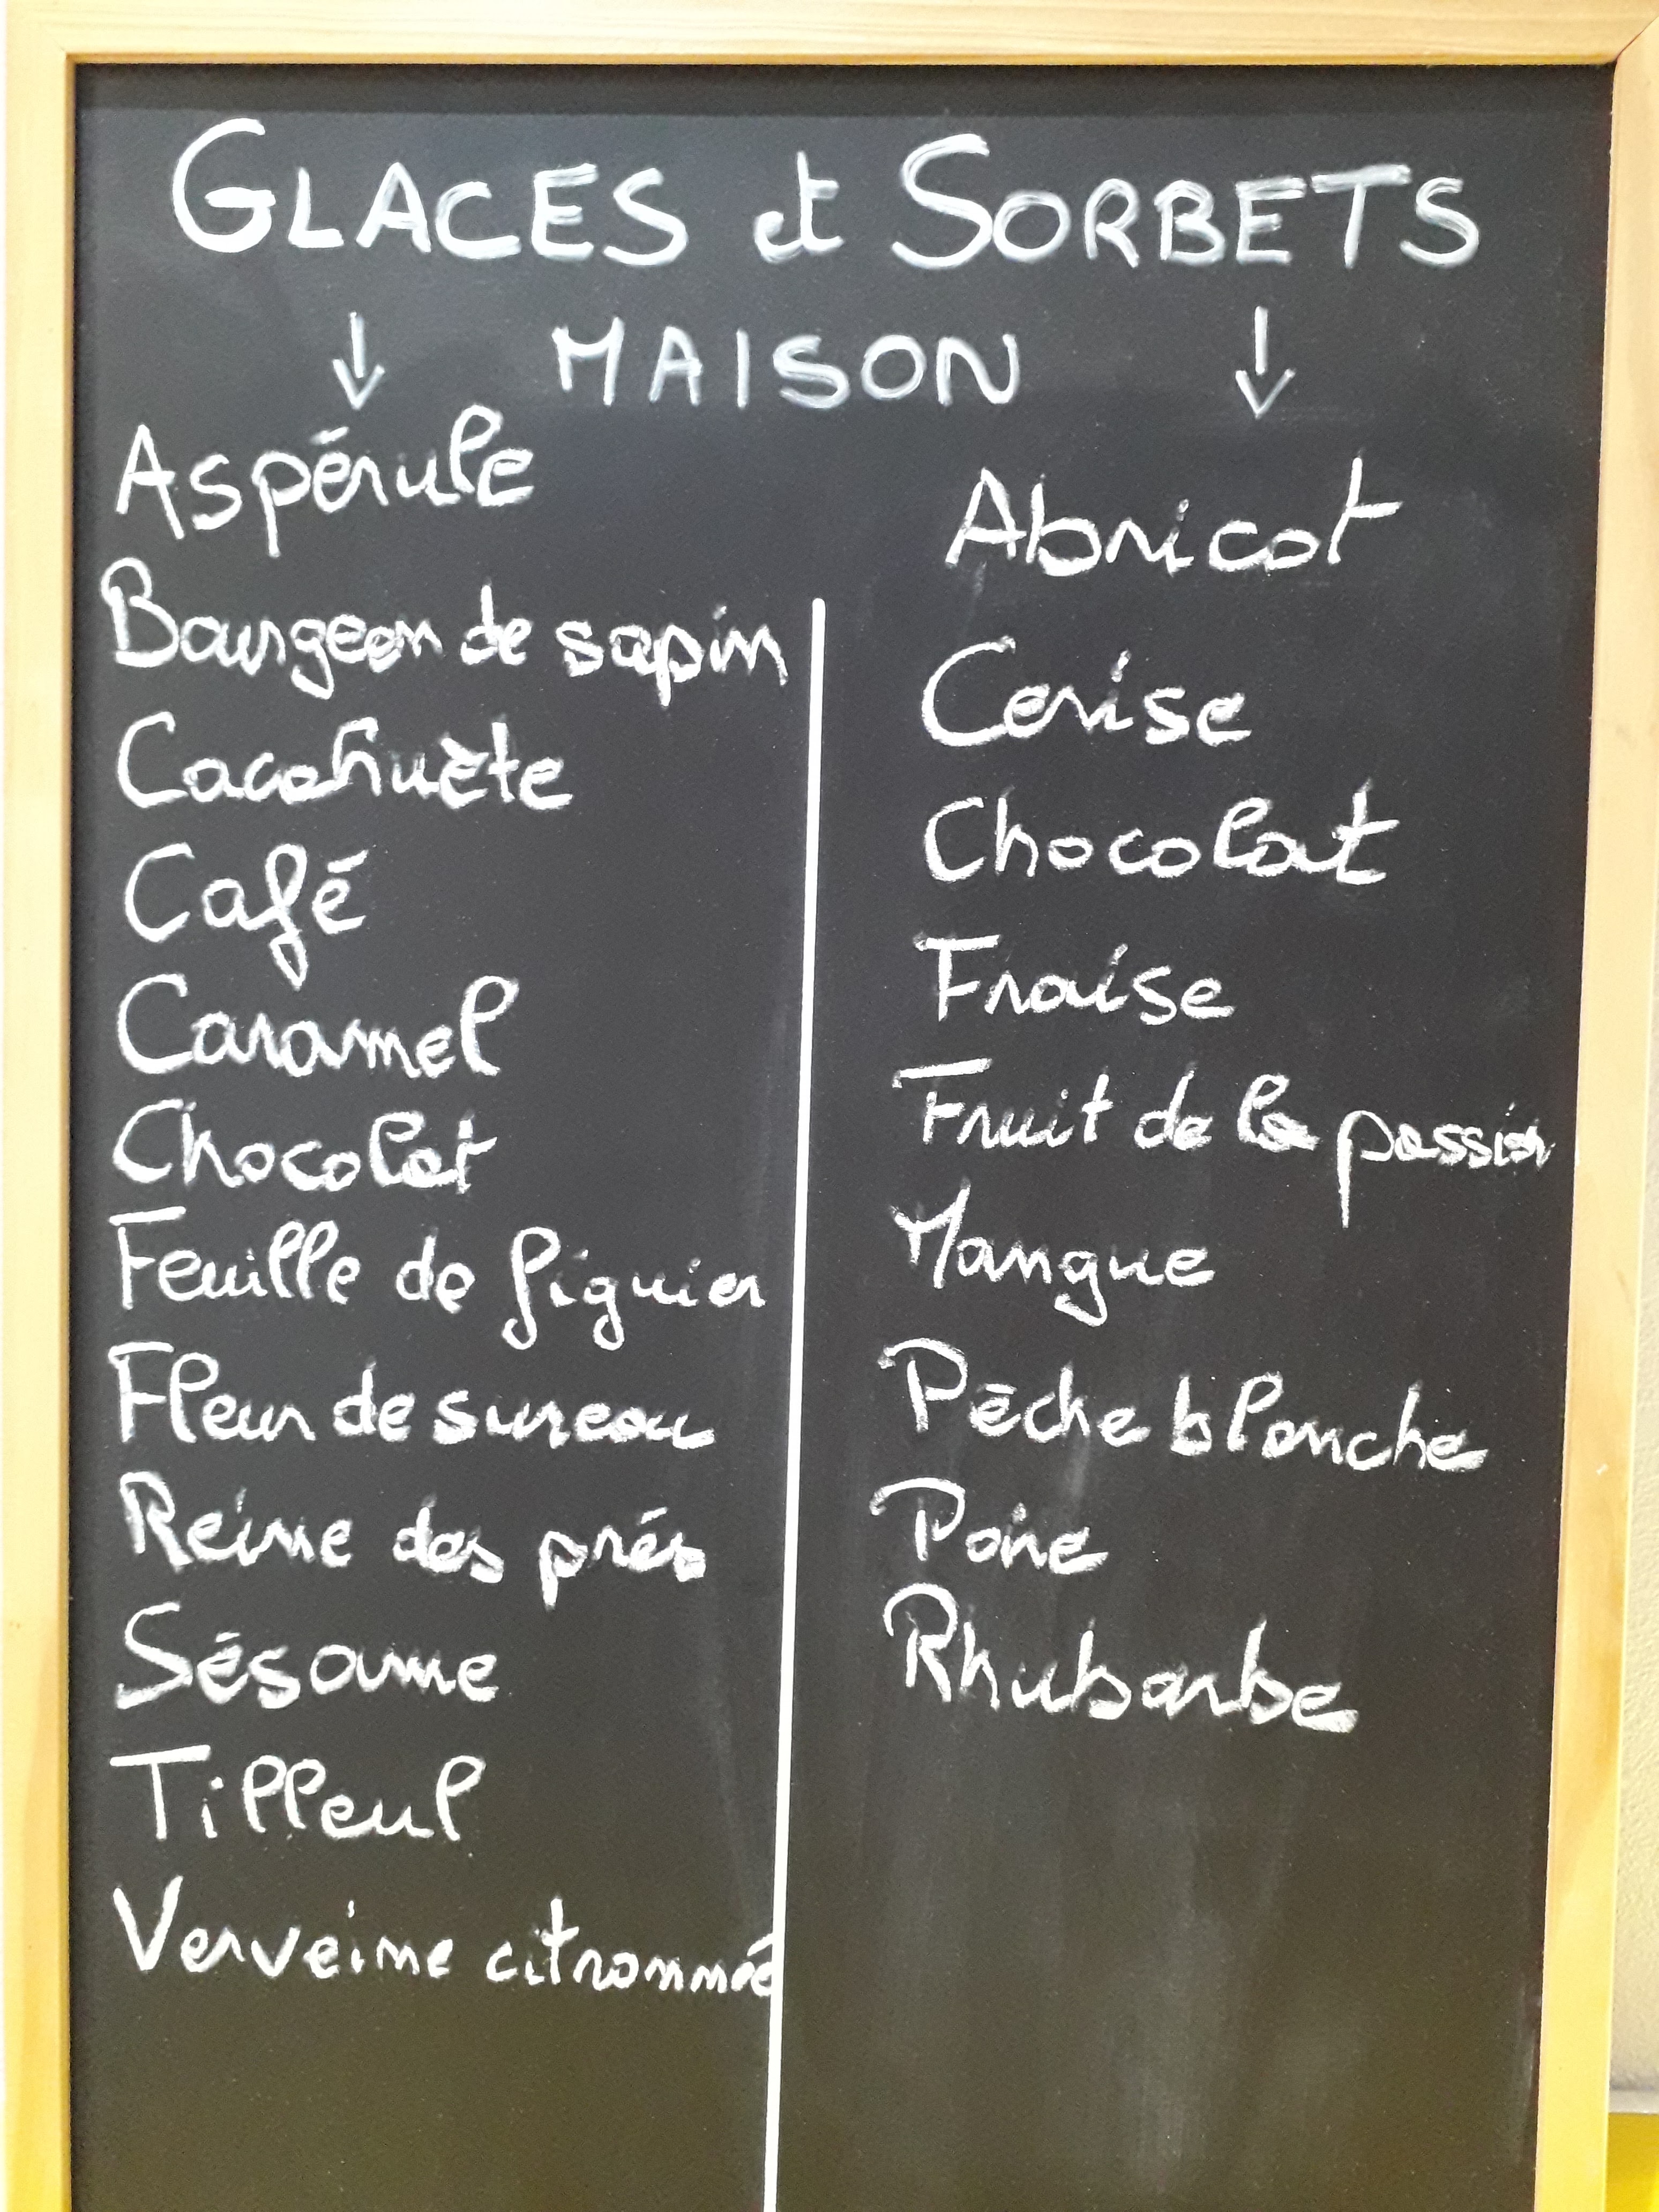 GLACES et SORBETS
MAISON
Aspérule
Bourgeon de sapin
Cacahuète
Café
Caramel
Chocolat
Feuille de figuier
Fleur de sureau
Reine des prés
Sésame
Tilleul
Verveine citronnée
Abricot
Cerise
Chocolat
Fraise
Fruit de la passion
Mangue
Pêche blanche
Poire
Rhubarbe